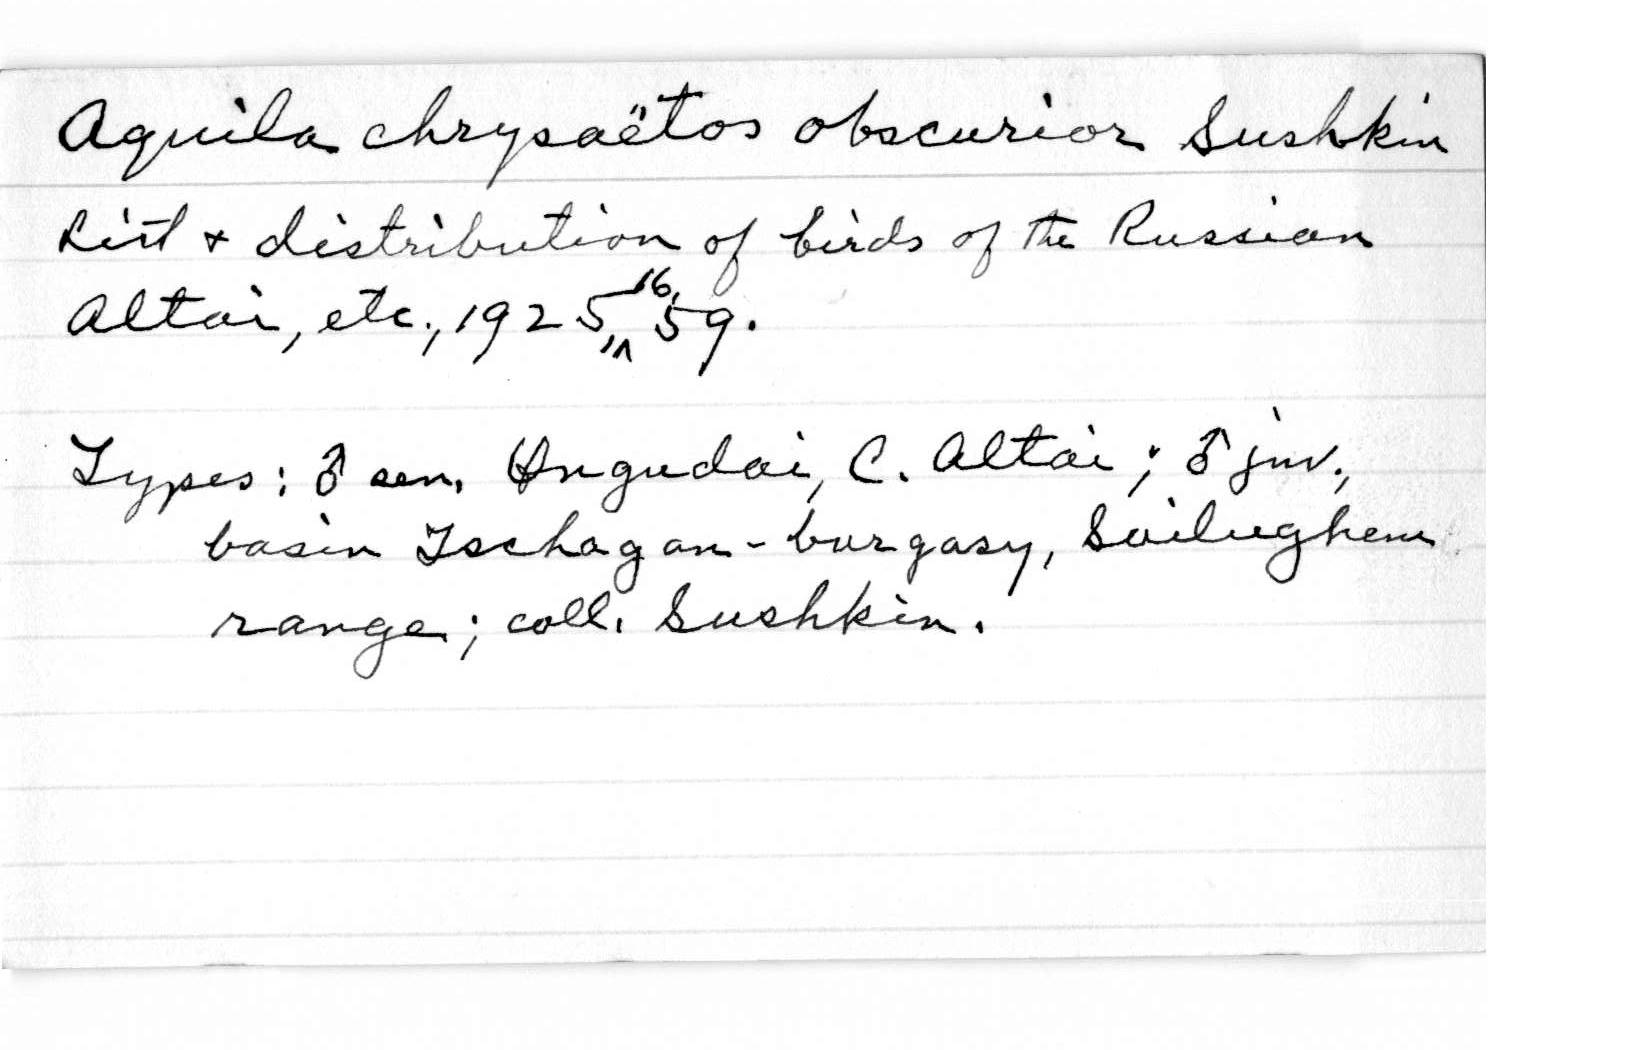 Aquila chrysaëtos obscurior Sushkin
List & distribution of birds of the Russian
Altai, etc., 1925, 16, 59.
Types: ♂ sen. Ongudai, C. Altai; ♂ juv.,
basin Tschagan-burgasy, Sailughem
range; coll. Sushkin.